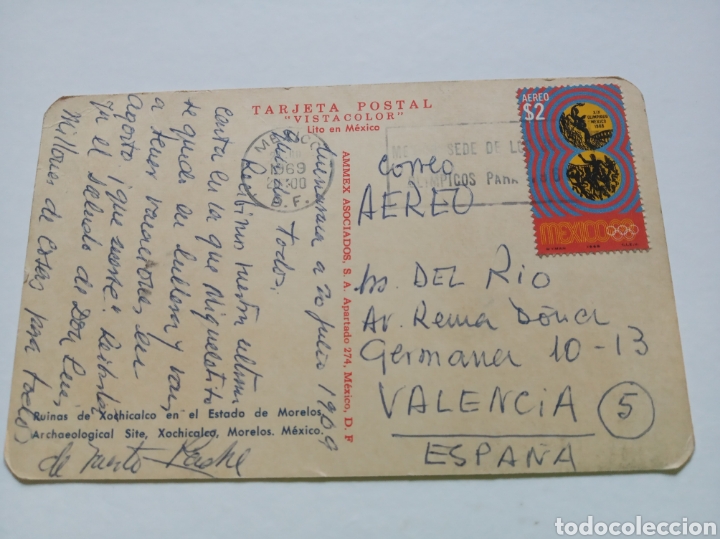 TARJETA POSTAL
"VISTACOLOR"
Lito en México
AEREO
$2
XIX OLIMPIADA
MEXICO
1968
MEXICO68
1968
MEXICO
1969
D. F.
SEDE DE LO
OLIMPICOS PARA
AMMEX ASOCIADOS, S. A. Apartado 274, México, D. F
CORREO
AEREO
DEL RIO
Av. Reina Dona
Germana 10-13
VALENCIA
5
ESPAÑA
a 20 julio 1969
Queridos todos:
Recibimos vuestra ultima
carta en la que Miguelito
te quedas en Cullera y vas
a tener vacaciones en
agosto ¡que suerte! Recibid
el saludo de Don Luis,
Millones de cosas para todos
de
Ruinas de Xochicalco en el Estado de Morelos
Archaeological Site, Xochicalco, Morelos. México.
todocoleccion